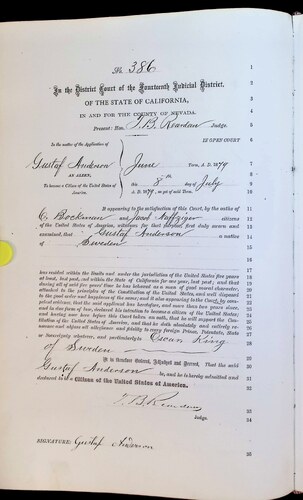 No. 386
In the District Court of the Fourteenth Judicial District,
OF THE STATE OF CALIFORNIA,
IN AND FOR THE COUNTY OF NEVADA.
Present: Hon. T. B. Reardan Judge.
IN OPEN COURT
In the matter of the Application of
Gustaf Anderson
AN ALIEN,
To become a Citizen of the United States of America
June Term, A. D. 1879
this 8th day of July
A. D. 1879, as yet of said Term.
It appearing to the satisfaction of this Court, by the oaths of
C. Bockman and Jacob Naffziger citizens
of the United States of America, witnesses for that purpose, first duly sworn and
examined, that Gustaf Anderson a native
of Sweden
has resided within the limits and under the jurisdiction of the United States five years
at least, last past, and within the State of California for one year, last past; and that
during all of said five years' time he has behaved as a man of good moral character,
attached to the principles of the Constitution of the United States, and well disposed
to the good order and happiness of the same; and it also appearing to the Court, by com-
petent evidence, that the said applicant has heretofore, and more than two years since,
and in due form of law, declared his intention to become a citizen of the United States;
and having now here before this Court taken an oath, that he will support the Con-
stitution of the United States of America, and that he doth absolutely and entirely re-
nounce and abjure all allegiance and fidelity to every foreign Prince, Potentate, State
or Sovereignty whatever, and particularly to Oscar King
of Sweden
It is therefore Ordered, Adjudged and Decreed, That the said
Gustaf Anderson be, and he is hereby admitted and
declared to be a Citizen of the United States of America.
T. B. Reardan
Judge.
SIGNATURE: Gustaf Anderson
1
2
3
4
5
6
7
8
9
10
11
12
13
14
15
16
17
18
19
20
21
22
23
24
25
26
27
28
29
30
31
32
33
34
35